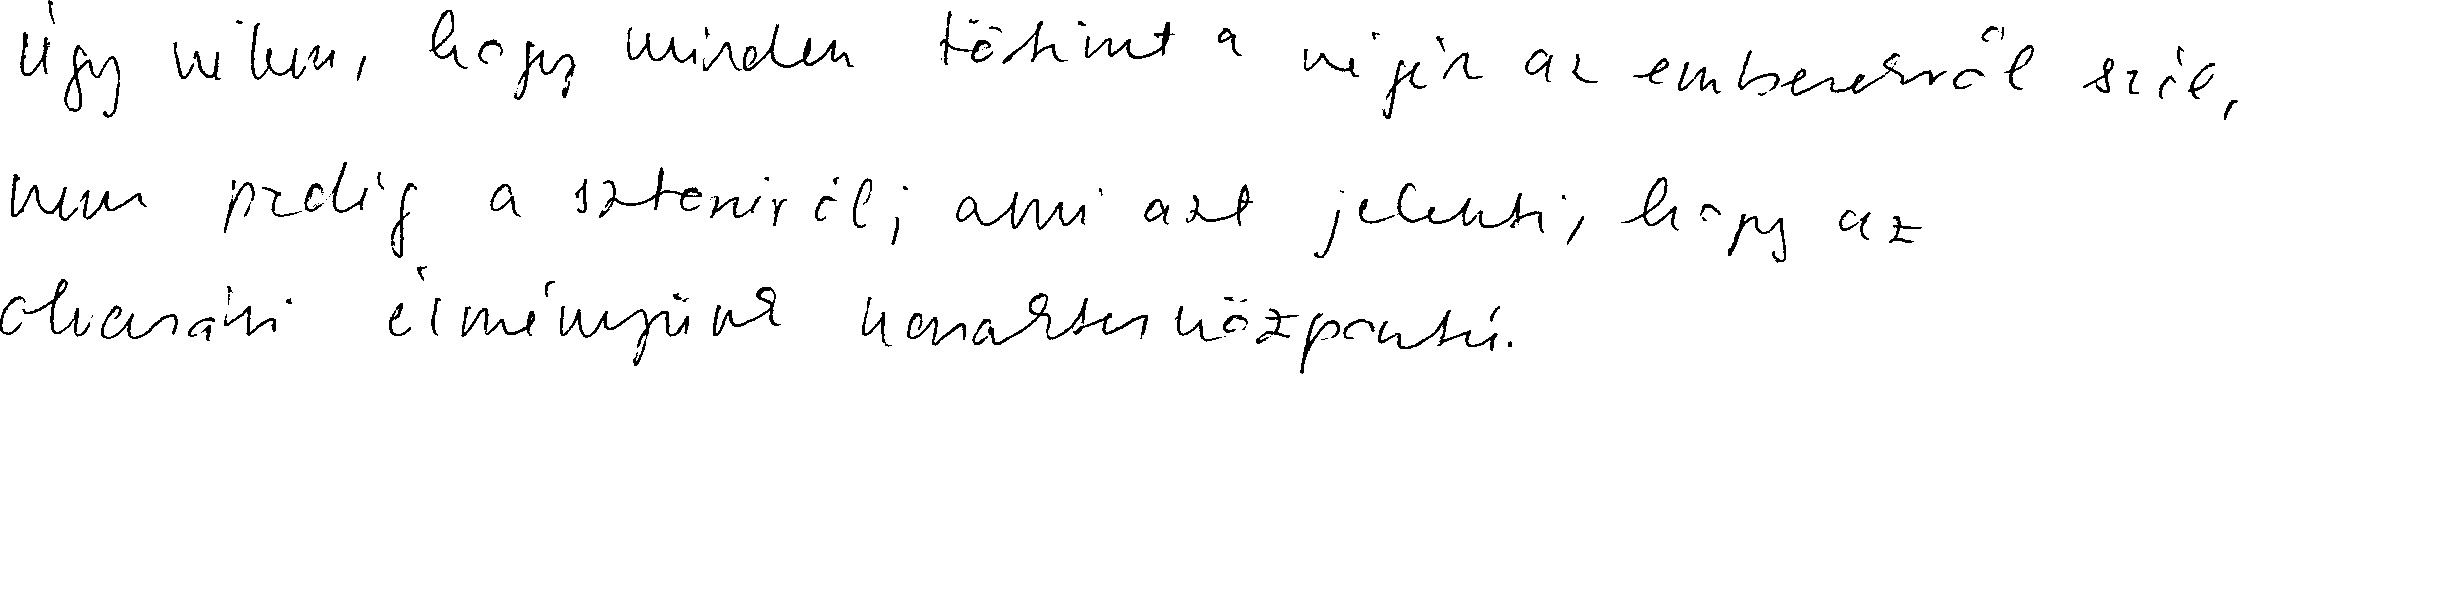 Úgy vélem, hogy minden történet a végén az emberekről szól,
nem pedig a sztoriról; ami azt jelenti, hogy az
olvasási élményünk karakterközpontú.